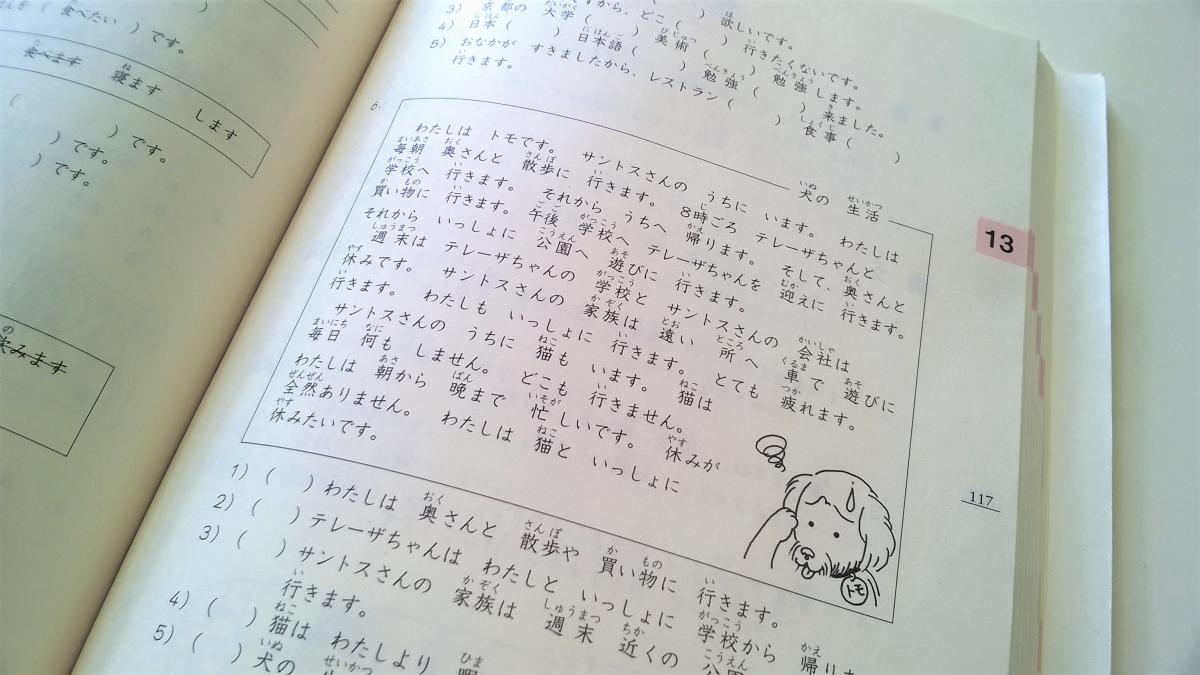 欲しいです。
すから、どこ( ) 行きたくないです。
3) 京都の 大学( ) 美術( ) 勉強します。
4) 日本( ) 日本語( ) 勉強( ) 来ました。
5) おなかが すきましたから、レストラン( ) 食事( )
行きます。
( 食べたい ) です。
食べます 寝ます します
( ) です。
) です。
) です。
飲みます
6.
犬の 生活
わたしは トモです。 サントスさんの うちに います。 わたしは
毎朝 奥さんと 散歩に 行きます。 8時ごろ テレーザちゃんと
学校へ 行きます。 それから うちへ 帰ります。 そして、奥さんと
買い物に 行きます。 午後 学校へ テレーザちゃんを 迎えに 行きます。
それから いっしょに 公園へ 遊びに 行きます。
週末は テレーザちゃんの 学校と サントスさんの 会社は
休みです。 サントスさんの 家族は 遠い 所へ 車で 遊びに
行きます。 わたしも いっしょに 行きます。 とても 疲れます。
サントスさんの うちに 猫も います。 猫は
毎日 何も しません。 どこも 行きません。
わたしは 朝から 晩まで 忙しいです。 休みが
全然ありません。 わたしは 猫と いっしょに
休みたいです。
トモ
1) ( ) わたしは 奥さんと 散歩や 買い物に 行きます。
2) ( ) テレーザちゃんは わたしと いっしょに 学校から 帰り
3) ( ) サントスさんの 家族は 週末 近くの 公園
行きます。
4) ( ) 猫は わたしより 暇
5) ( ) 犬の 生
13
117